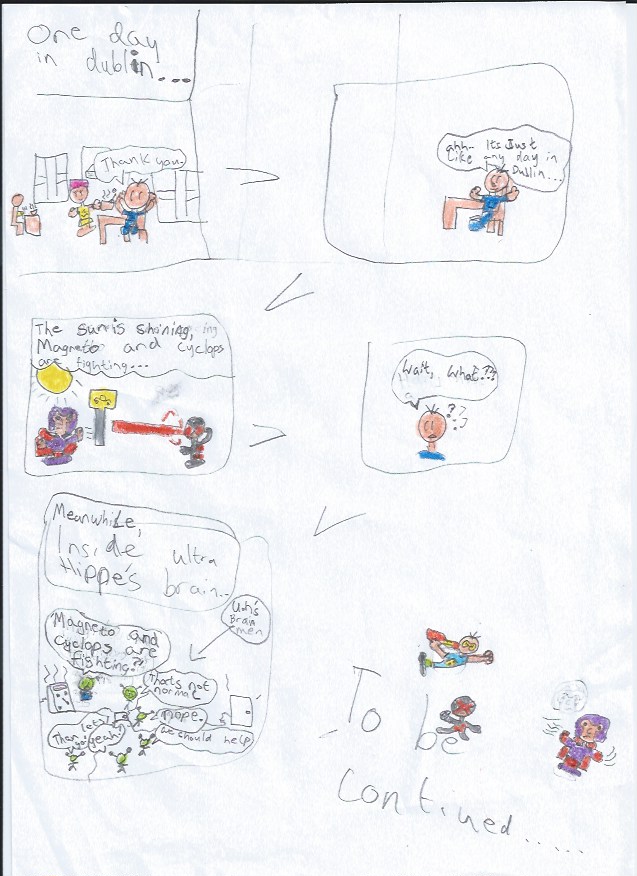 One day
in dublin...
Thank you.
ahh.. Its Just
Like any day in
Dublin...
The Sun is shining,
Magneto and Cyclops
are fighting...
Wait, What??
???
Meanwhile,
Inside ultra
Hippe's brain..
U.H's
Brain
men
Magneto and
Cyclops are
fighting??
Thats not
normal
nope.
we should help
Then lets
go! yeah!
To be
continued.....